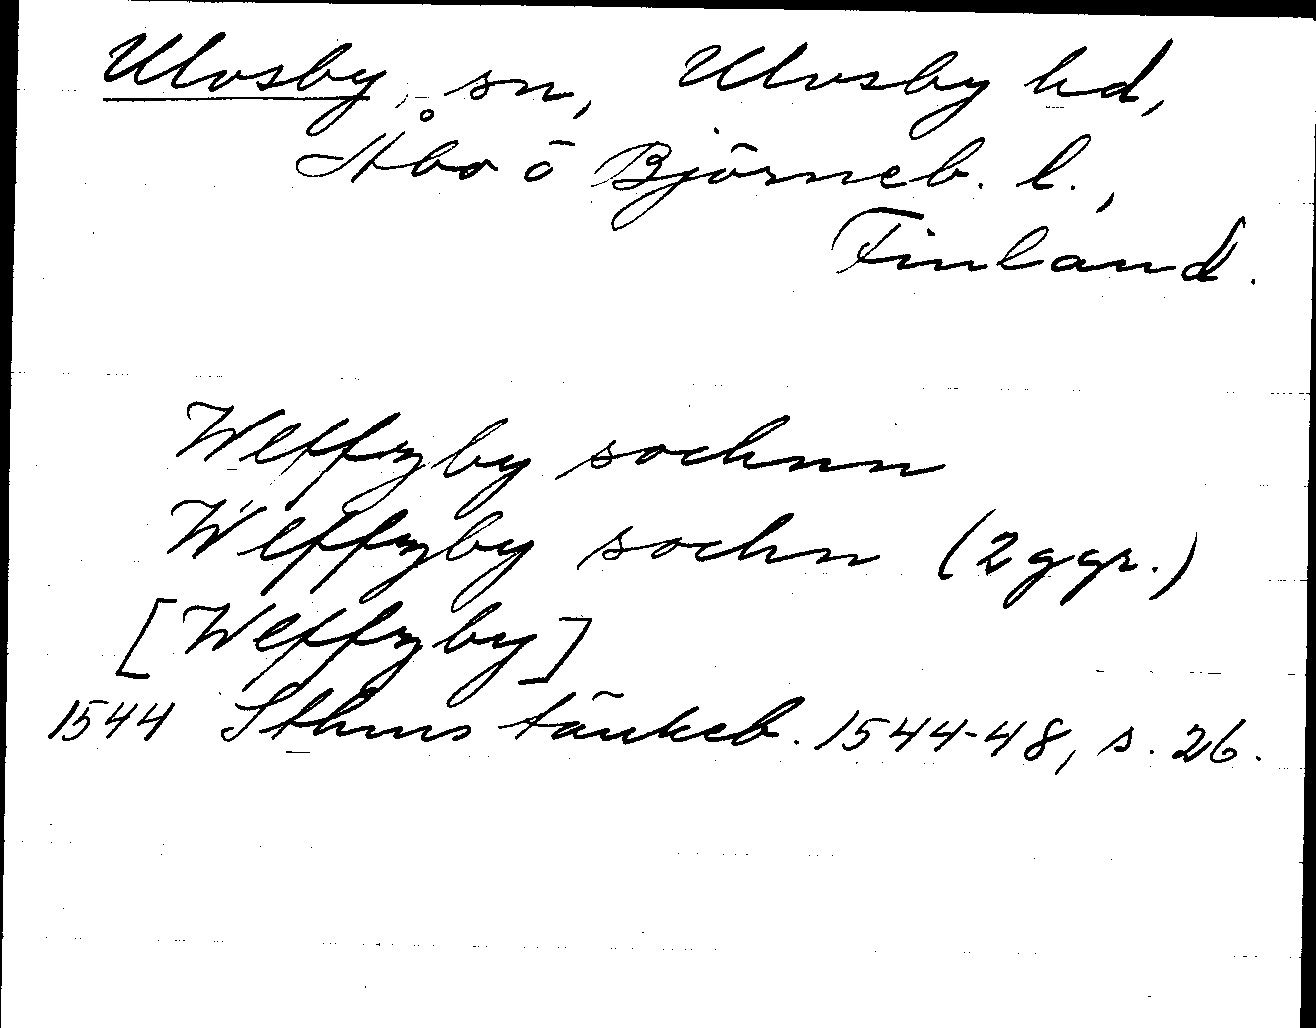 Ulvsby, sn, Ulvsby hd,
Åbo ö Björneb. l.,
Finland.
Wlffzby sochnn
Wlffzby sochn (2 ggr.)
[Wlffzby]
1544 Sthms tänkeb. 1544-48, s. 26.